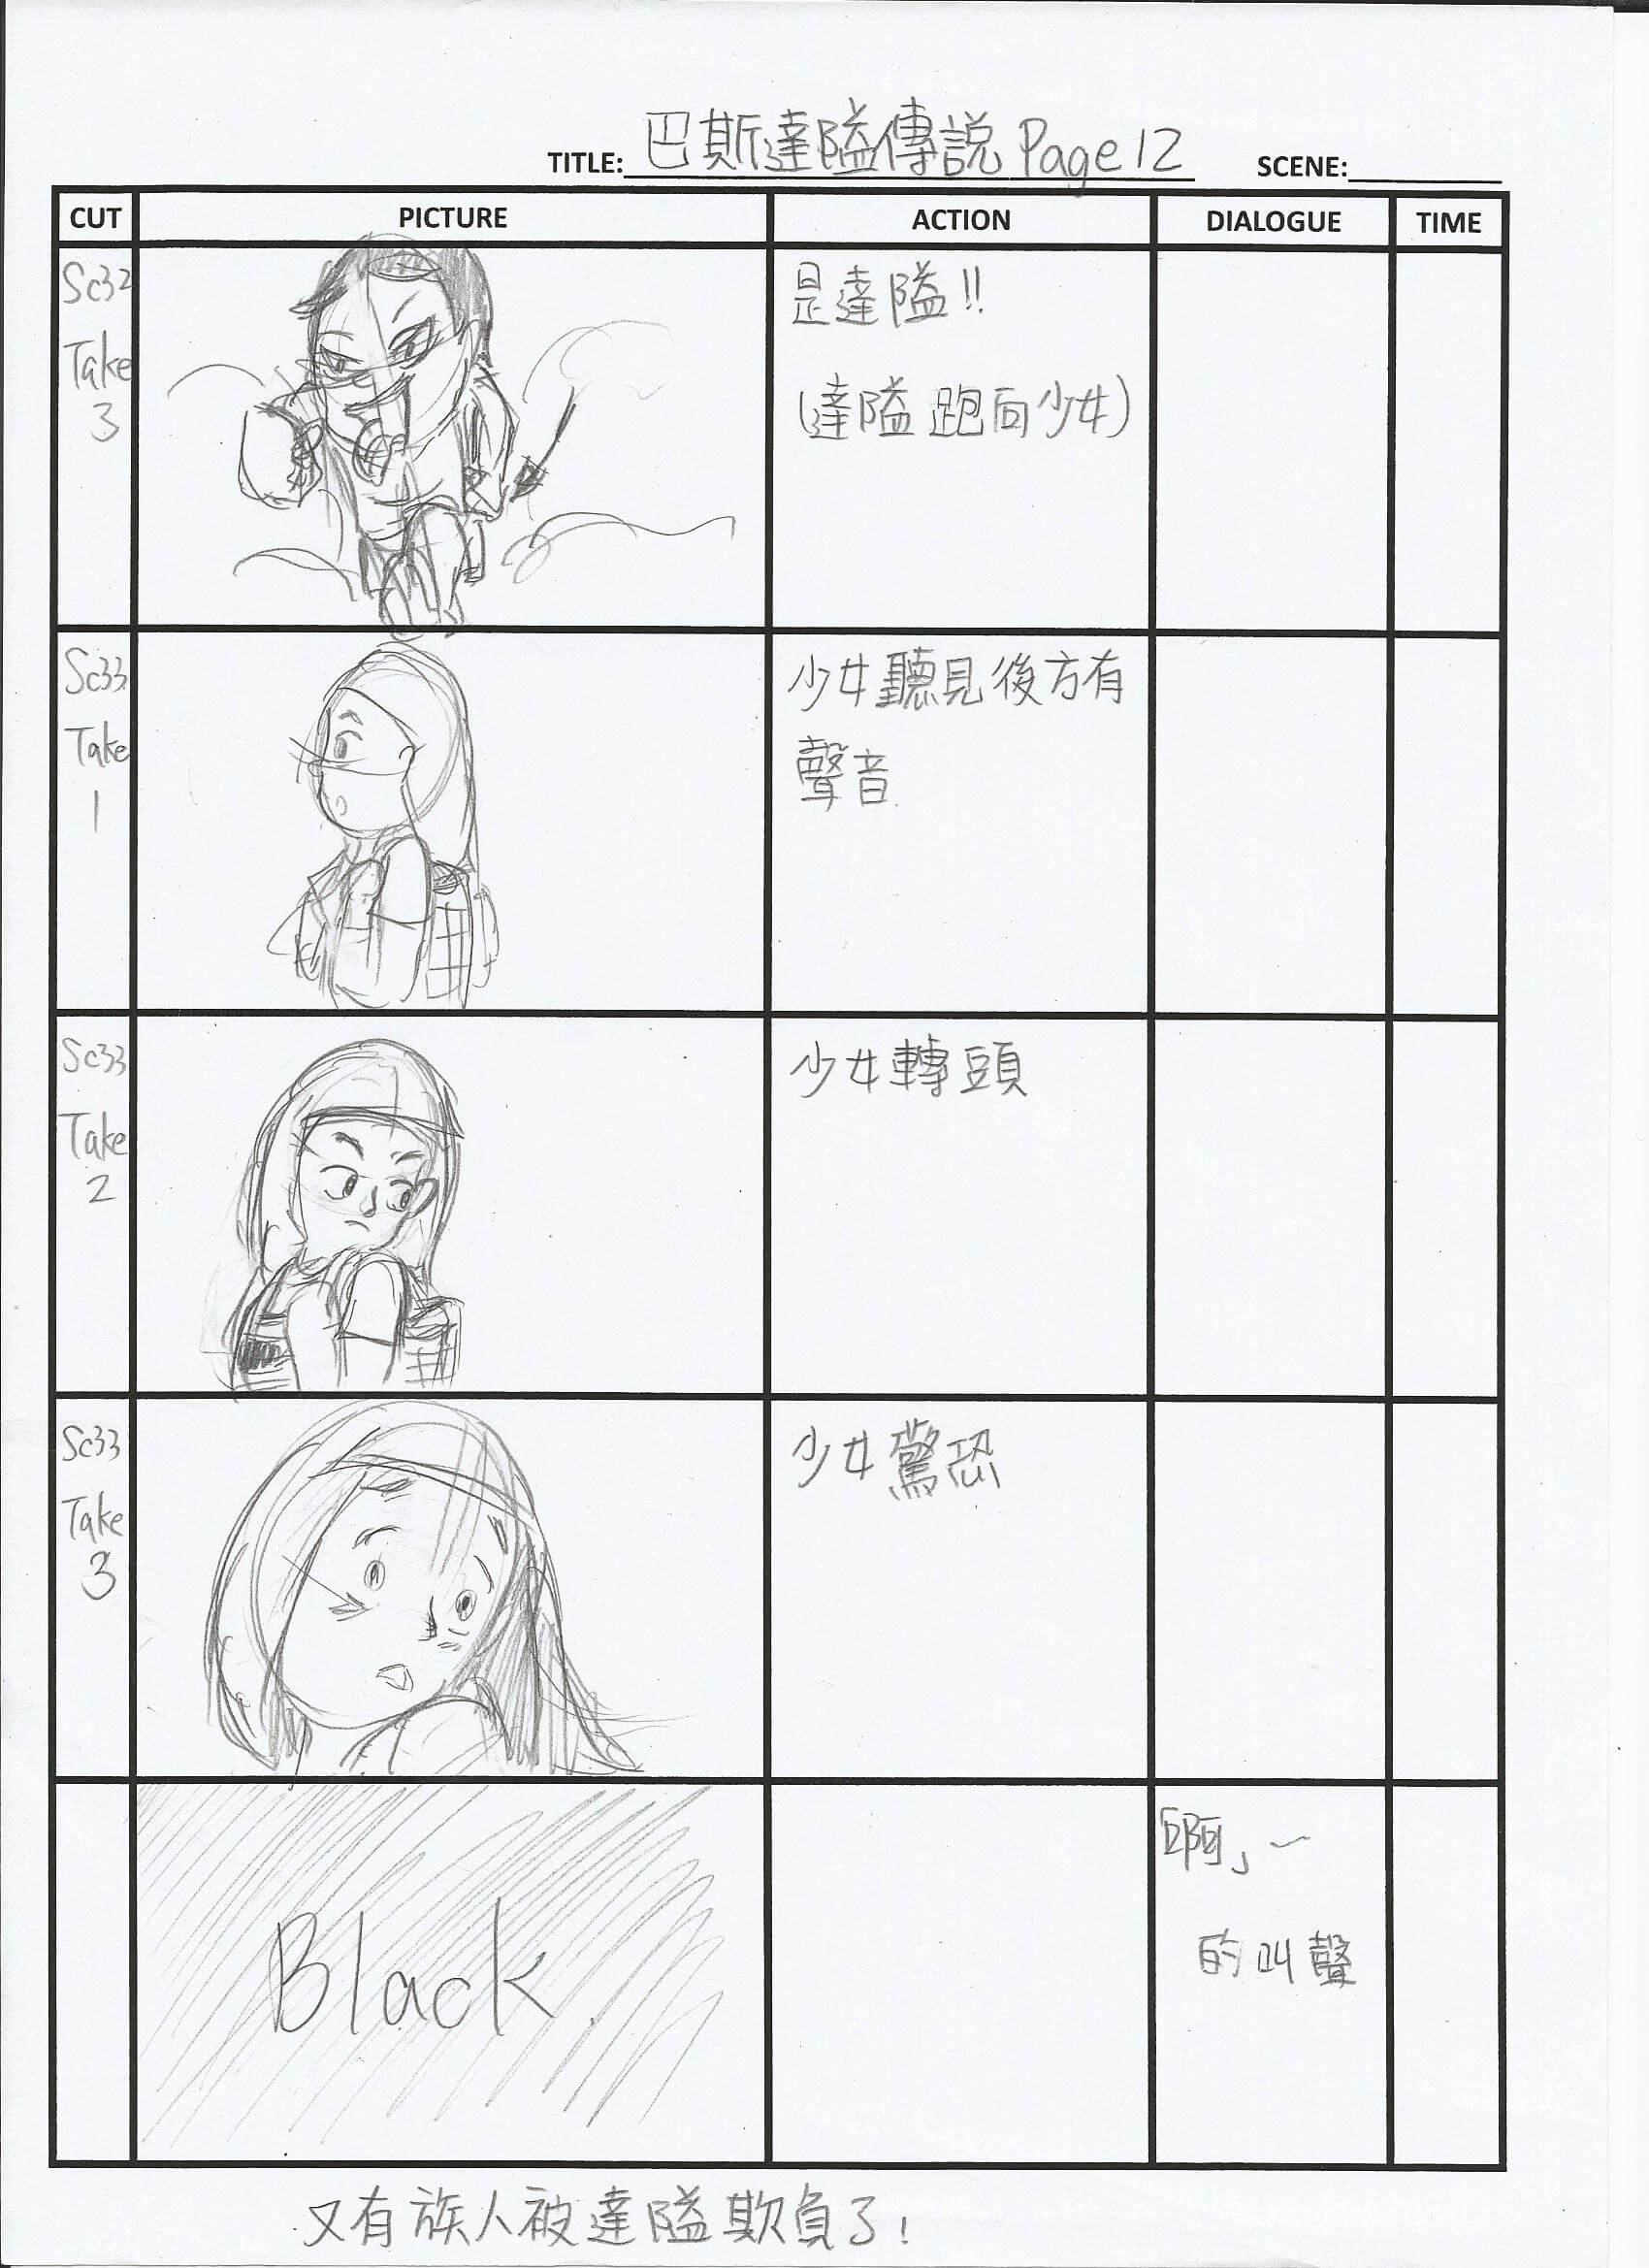 TITLE: 巴斯達隘傳說 Page 12 SCENE:
CUT PICTURE ACTION DIALOGUE TIME
Sc32
Take
3
是達隘!!
(達隘跑向少女)
Sc33
Take
1
少女聽見後方有
聲音
Sc33
Take
2
少女轉頭
Sc33
Take
3
少女驚恐
Black
「啊」~
的叫聲
又有族人被達隘欺負了!